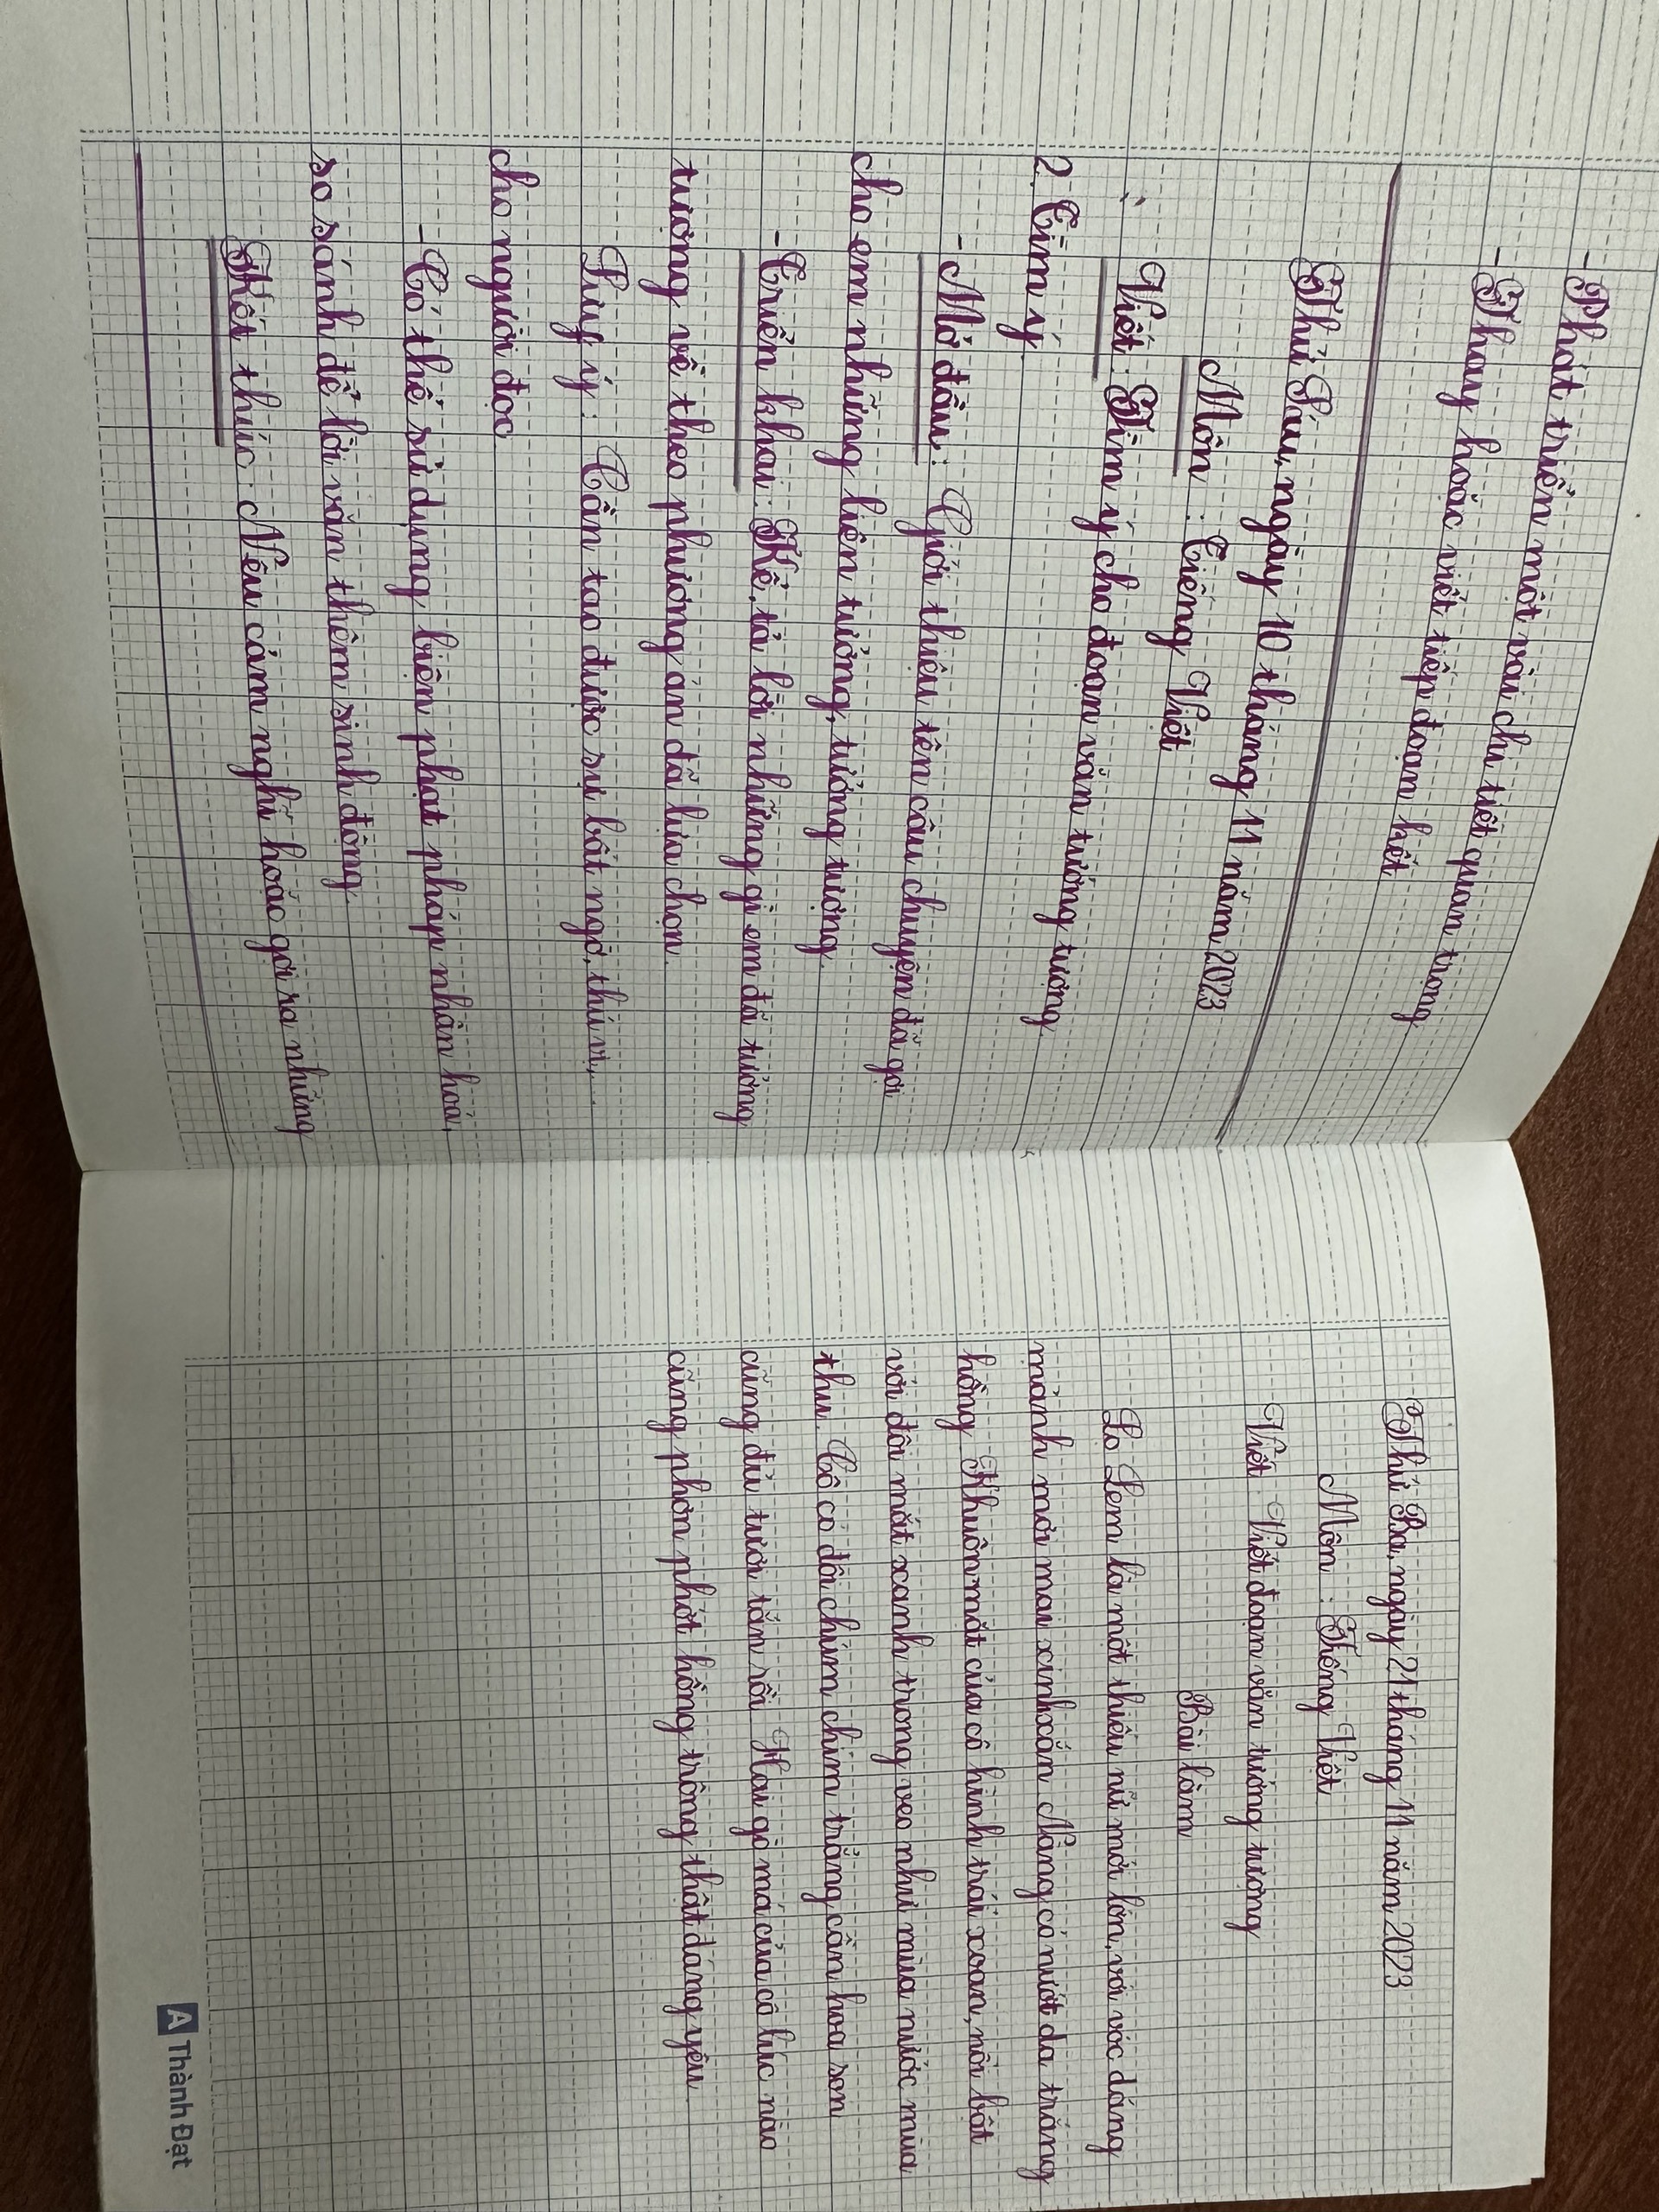 - Phát triển một vài chi tiết quan trọng
- Thay hoặc viết tiếp đoạn kết
Thứ Sáu, ngày 10 tháng 11 năm 2023
Môn : Tiếng Việt
Viết : Tìm ý cho đoạn văn tưởng tượng
2. Tìm ý
- Mở đầu : Giới thiệu tên câu chuyện đã gợi
cho em những liên tưởng, tưởng tượng.
- Triển khai : Kể, tả lời những gì em đã tưởng
tượng về theo phương án đã lựa chọn.
Lưu ý : Cần tạo được sự bất ngờ, thú vị,...
cho người đọc
- Có thể sử dụng biện phạt pháp nhân hoá,
so sánh để lời văn thêm sinh động.
Kết thúc : Nêu cảm nghĩ hoặc gợi ra những
Thứ Ba, ngày 21 tháng 11 năm 2023
Môn : Tiếng Việt
Viết : Viết đoạn văn tưởng tượng
Bài làm
Lọ Lem là một thiếu nữ mới lớn, với vóc dáng
mảnh mơi mai xinh xắn. Nàng có nướt da trắng
hồng. Khuôn mặt của cô hình trái xoan, nổi bật
với đôi mắt xanh trong veo như mùa nước mùa
thu. Cô có đôi chúm chím trẳng cần hoa son
cũng đủ tươi tắn rồi. Hai gò má của cô lúc nào
cũng phơn phớt hồng trông thật đáng yêu.
A Thành Đạt